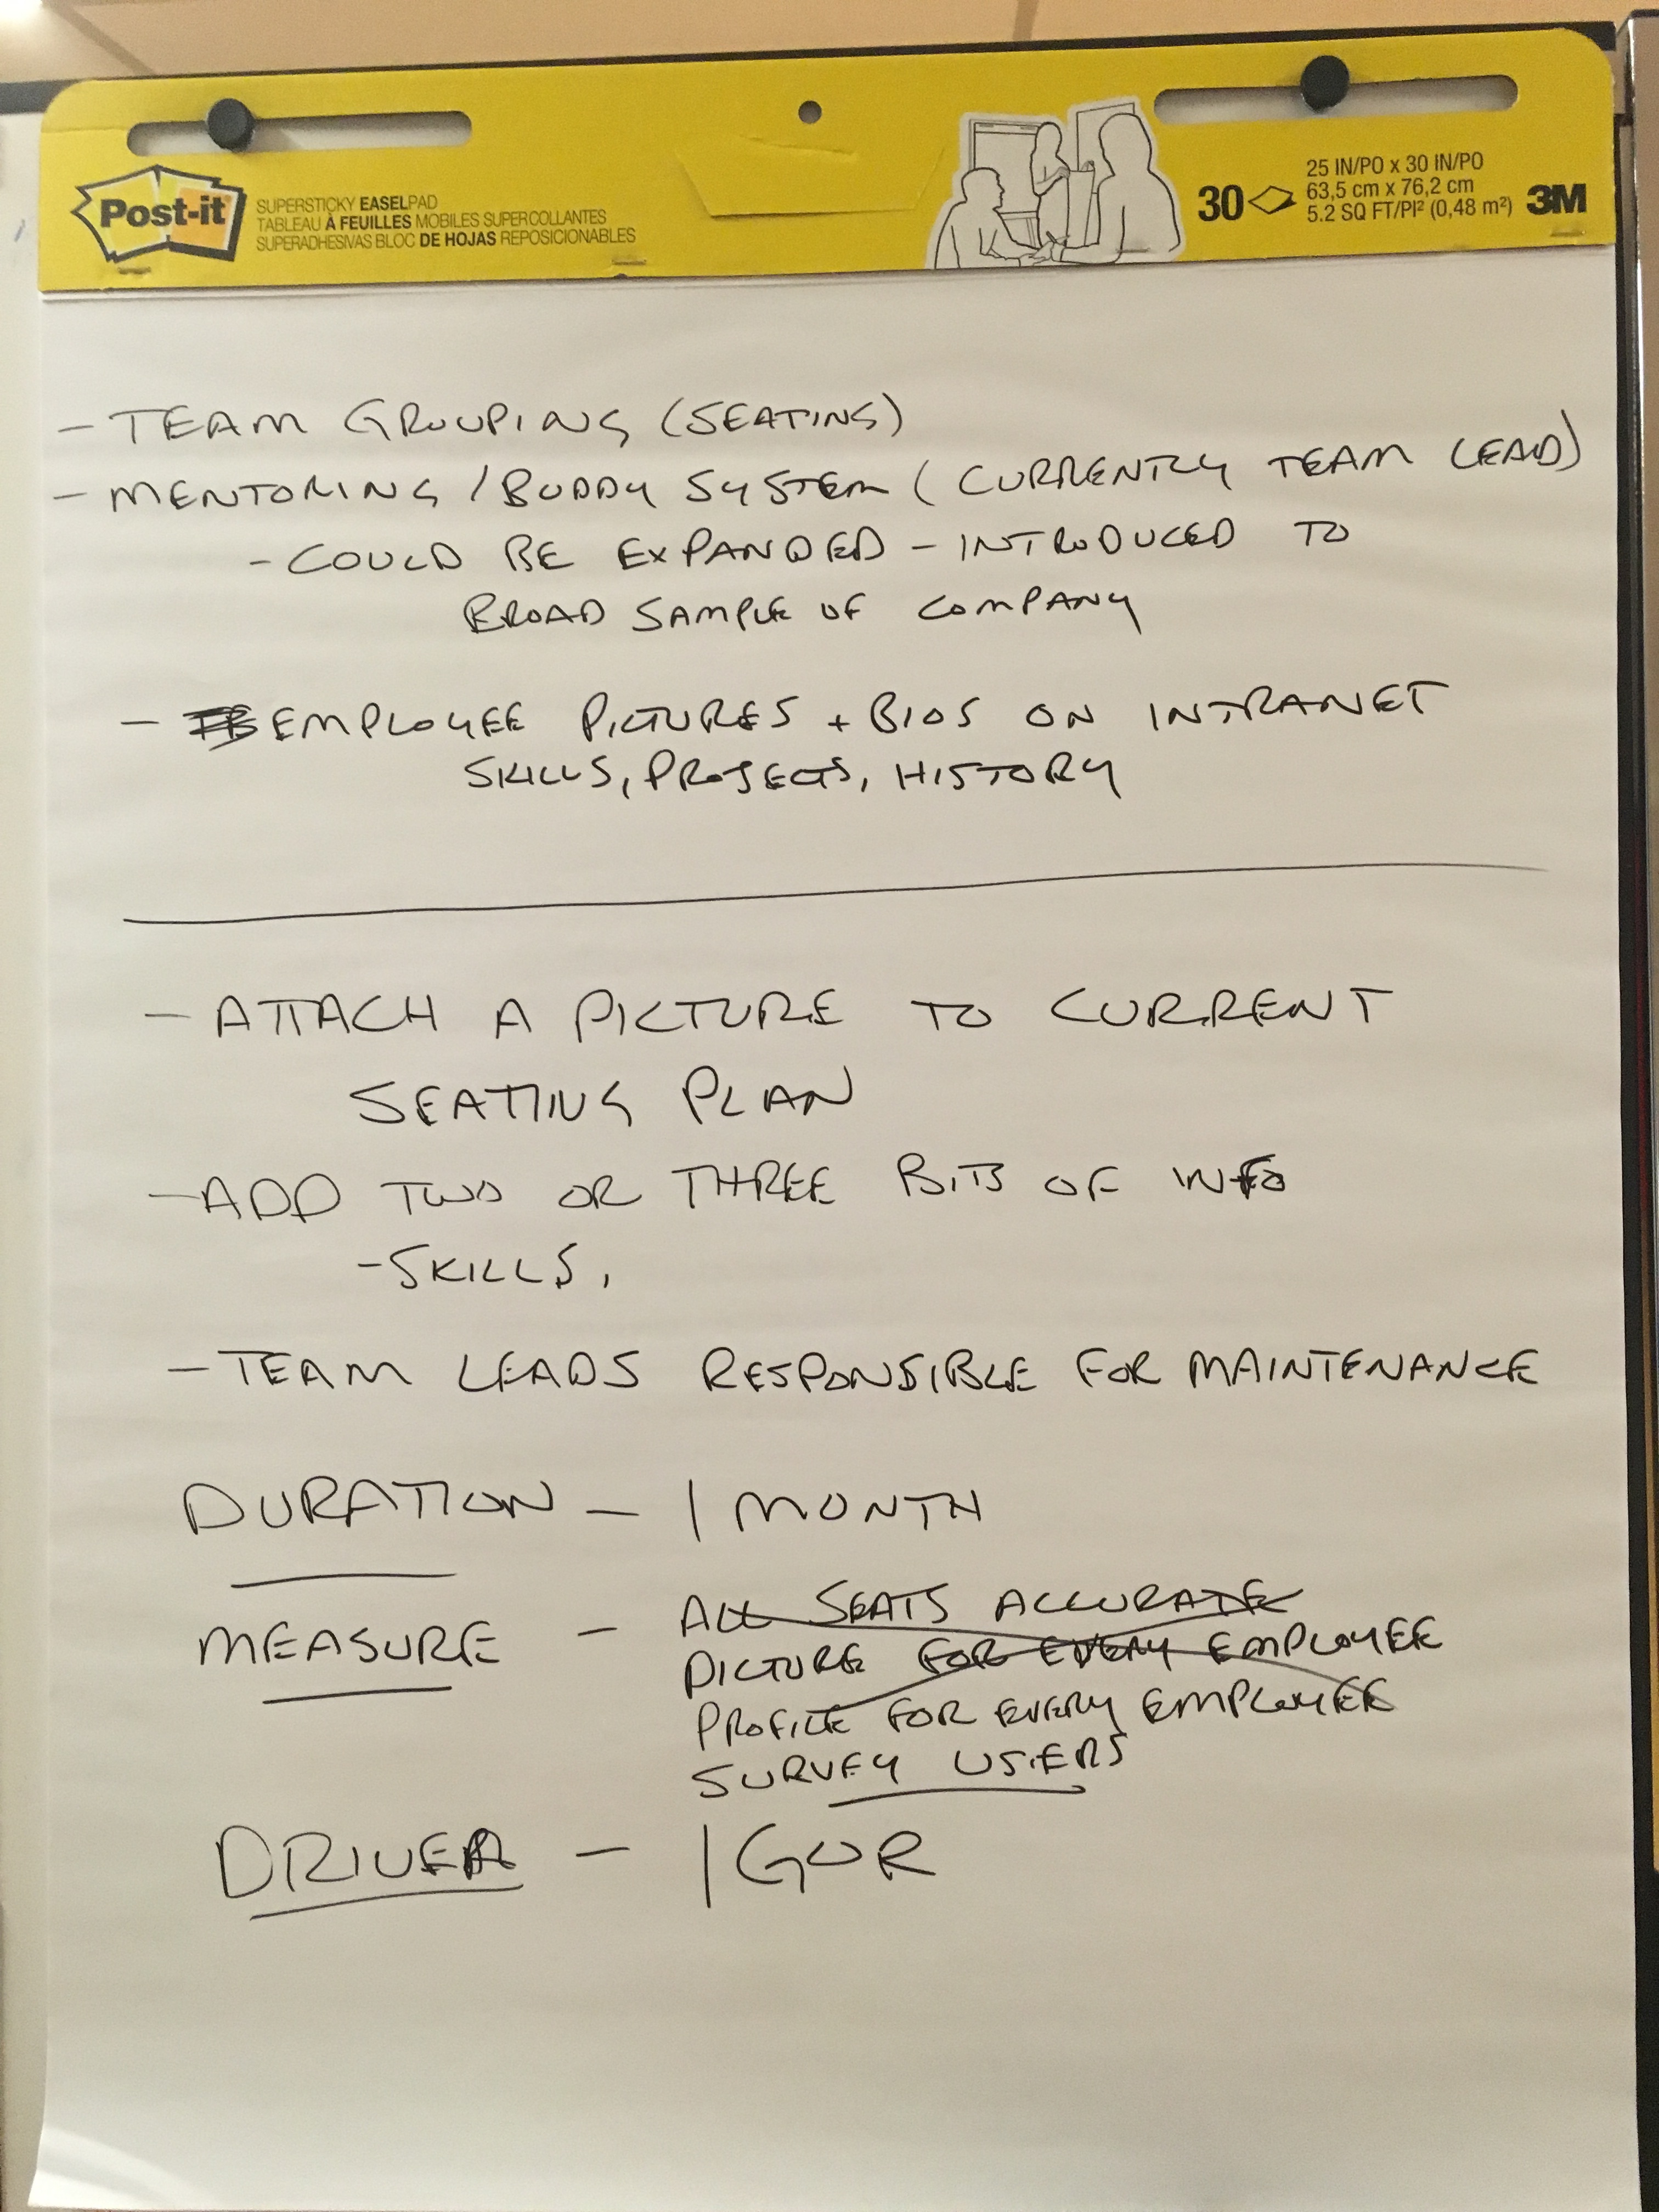 Post-it
SUPERSTICKY EASELPAD
TABLEAU À FEUILLES MOBILES SUPERCOLLANTES
SUPERADHESIVAS BLOC DE HOJAS REPOSICIONABLES
30
25 IN/PO x 30 IN/PO
63,5 cm x 76,2 cm
5.2 SQ FT/PI² (0,48 m²)
3M
- TEAM GROUPING (SEATING)
- MENTORING / BUDDY SYSTEM (CURRENTLY TEAM LEAD)
- COULD BE EXPANDED - INTRODUCED TO
BROAD SAMPLE OF COMPANY
- EMPLOYEE PICTURES + BIOS ON INTRANET
SKILLS, PROJECTS, HISTORY
- ATTACH A PICTURE TO CURRENT
SEATING PLAN
- ADD TWO OR THREE BITS OF INFO
- SKILLS,
- TEAM LEADS RESPONSIBLE FOR MAINTENANCE
DURATION - 1 MONTH
MEASURE - ALL SEATS ACCURATE
PICTURE FOR EVERY EMPLOYEE
PROFILE FOR EVERY EMPLOYEE
SURVEY USERS
DRIVER - IGOR